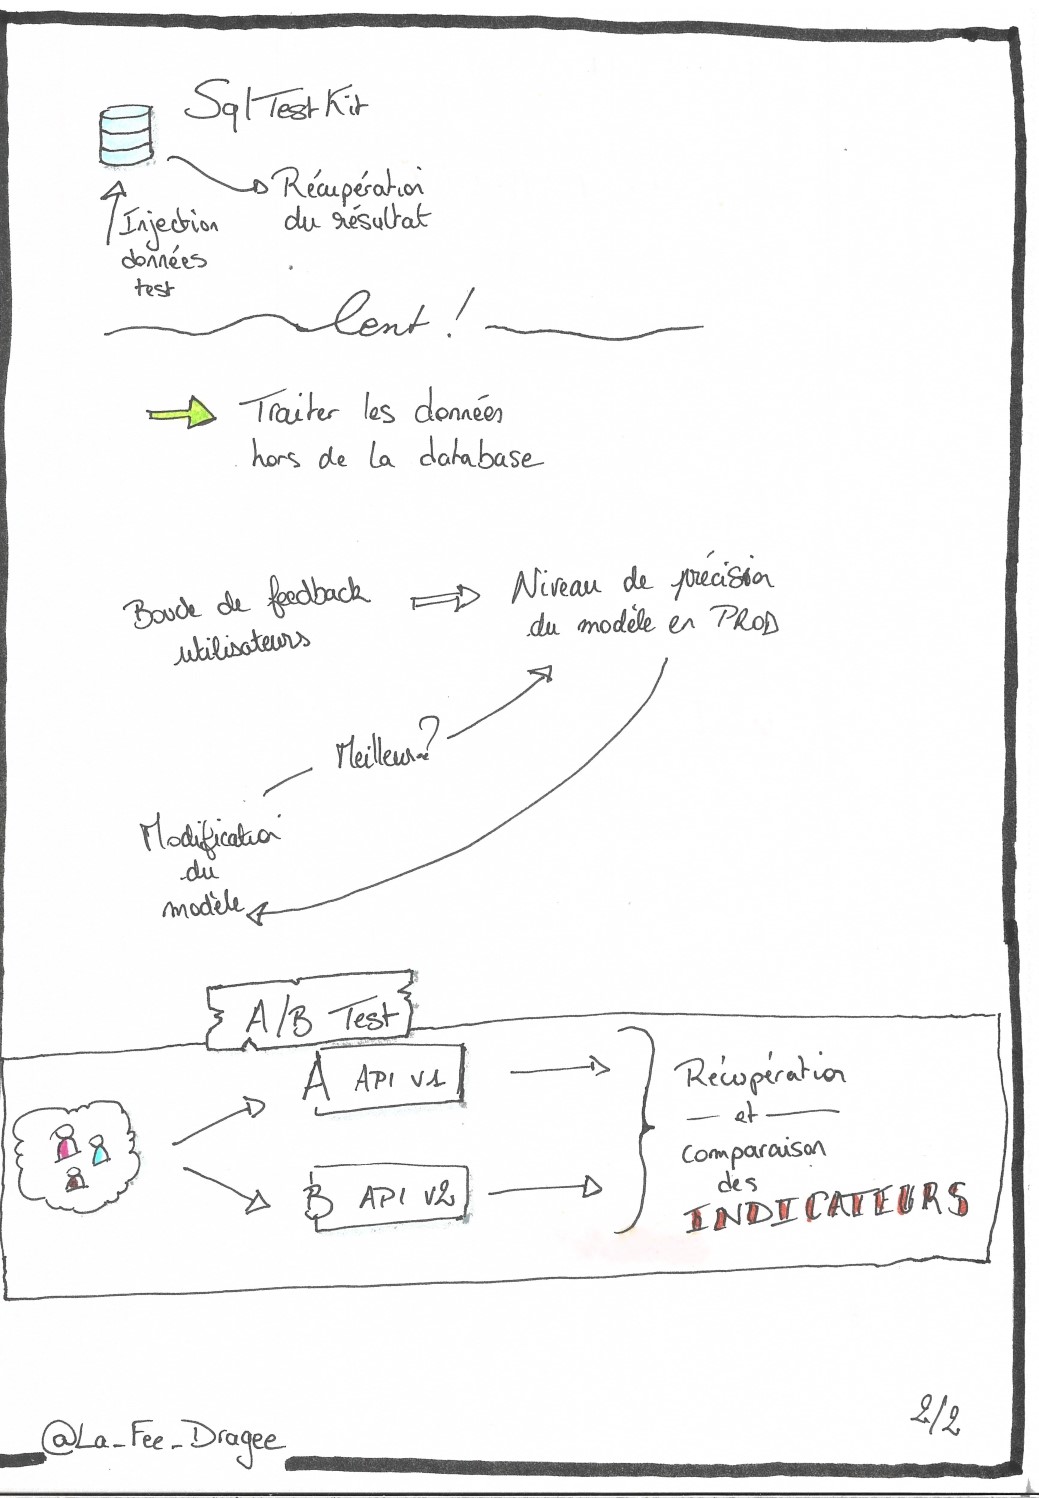 SqlTestKit
Récupération
du résultat
Injection
données
test
lent !
Traiter les données
hors de la database
Boucle de feedback
utilisateurs
Niveau de précision
du modèle en PROD
Meilleur?
Modification
du
modèle
A/B Test
A API V1
B API V2
Récupération
et
comparaison
des
INDICATEURS
2/2
@La_Fee_Dragee